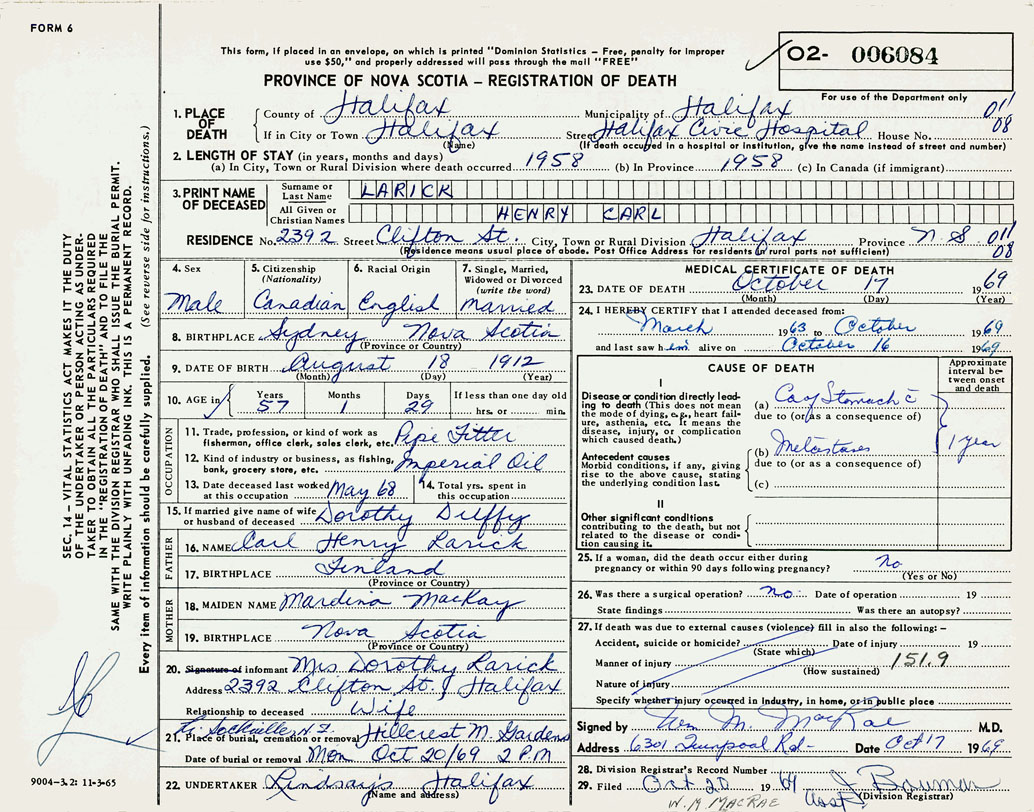 FORM 6
This form, if placed in an envelope, on which is printed "Dominion Statistics – Free, penalty for improper
use $50," and properly addressed will pass through the mail "FREE"
PROVINCE OF NOVA SCOTIA – REGISTRATION OF DEATH
O2- 006084
For use of the Department only
011
08
1. PLACE OF DEATH
County of Halifax Municipality of Halifax
If in City or Town Halifax Street Halifax Civic Hospital House No.
(Name) (If death occurred in a hospital or institution, give the name instead of street and number)
2. LENGTH OF STAY (in years, months and days)
(a) In City, Town or Rural Division where death occurred 1958 (b) In Province 1958 (c) In Canada (if immigrant)
3. PRINT NAME OF DECEASED
Surname or Last Name LARICK
All Given or Christian Names HENRY CARL
RESIDENCE No. 2392 Street Clifton St. City, Town or Rural Division Halifax Province N.S. 011
08
(Residence means usual place of abode. Post Office Address for residents in rural parts not sufficient)
4. Sex
Male
5. Citizenship
(Nationality)
Canadian
6. Racial Origin
English
7. Single, Married,
Widowed or Divorced
(write the word)
Married
8. BIRTHPLACE Sydney Nova Scotia
(Province or Country)
9. DATE OF BIRTH August 18 1912
(Month) (Day) (Year)
10. AGE in Years Months Days If less than one day old
57 1 29 hrs. or min.
OCCUPATION
11. Trade, profession, or kind of work as
fisherman, office clerk, sales clerk, etc. Pipe Fitter
12. Kind of industry or business, as fishing,
bank, grocery store, etc. Imperial Oil
13. Date deceased last worked
at this occupation May 68
14. Total yrs. spent in
this occupation
15. If married give name of wife
or husband of deceased Dorothy Duffy
FATHER
16. NAME Carl Henry Larick
17. BIRTHPLACE Finland
(Province or Country)
MOTHER
18. MAIDEN NAME Mardina MacKay
19. BIRTHPLACE Nova Scotia
(Province or Country)
20. Signature of informant Mrs Dorothy Larick
Address 2392 Clifton St. Halifax
Relationship to deceased Wife
Sackville N.S.
21. Place of burial, cremation or removal Hillcrest M. Gardens
Date of burial or removal Mon Oct 20/69 2 PM
22. UNDERTAKER Lindsay's Halifax
(Name and address)
MEDICAL CERTIFICATE OF DEATH
23. DATE OF DEATH October 17 1969
(Month) (Day) (Year)
24. I HEREBY CERTIFY that I attended deceased from:
March 1963 to October 1969
and last saw him alive on October 16 1969
CAUSE OF DEATH
Approximate
interval be-
tween onset
and death
I
Disease or condition directly lead-
ing to death (This does not mean
the mode of dying, e.g., heart fail-
ure, asthenia, etc. It means the
disease, injury, or complication
which caused death.)
(a) Ca of Stomach c̄
due to (or as a consequence of)
Antecedent causes
Morbid conditions, if any, giving
rise to the above cause, stating
the underlying condition last.
(b) Metastases
1 year
due to (or as a consequence of)
(c)
II
Other significant conditions
contributing to the death, but not
related to the disease or condi-
tion causing it.
25. If a woman, did the death occur either during
pregnancy or within 90 days following pregnancy? No
(Yes or No)
26. Was there a surgical operation? No Date of operation 19
State findings Was there an autopsy?
27. If death was due to external causes (violence) fill in also the following:–
Accident, suicide or homicide? Date of injury 19
(State which)
Manner of injury 151.9
(How sustained)
Nature of injury
Specify whether injury occurred in industry, in home, or in public place
Signed by Wm M. MacRae M.D.
Address 6301 Quinpool Rd- Date Oct 17 1969
28. Division Registrar's Record Number
29. Filed Oct 20 1969 J Bauman
Asst (Division Registrar)
W. M MACRAE
SEC. 14 – VITAL STATISTICS ACT MAKES IT THE DUTY
OF THE UNDERTAKER OR PERSON ACTING AS UNDER-
TAKER TO OBTAIN ALL THE PARTICULARS REQUIRED
IN THE "REGISTRATION OF DEATH" AND TO FILE THE
SAME WITH THE DIVISION REGISTRAR WHO SHALL ISSUE THE BURIAL PERMIT.
WRITE PLAINLY WITH UNFADING INK. THIS IS A PERMANENT RECORD.
Every item of information should be carefully supplied. (See reverse side for instructions.)
9004–3.2: 11-3-65